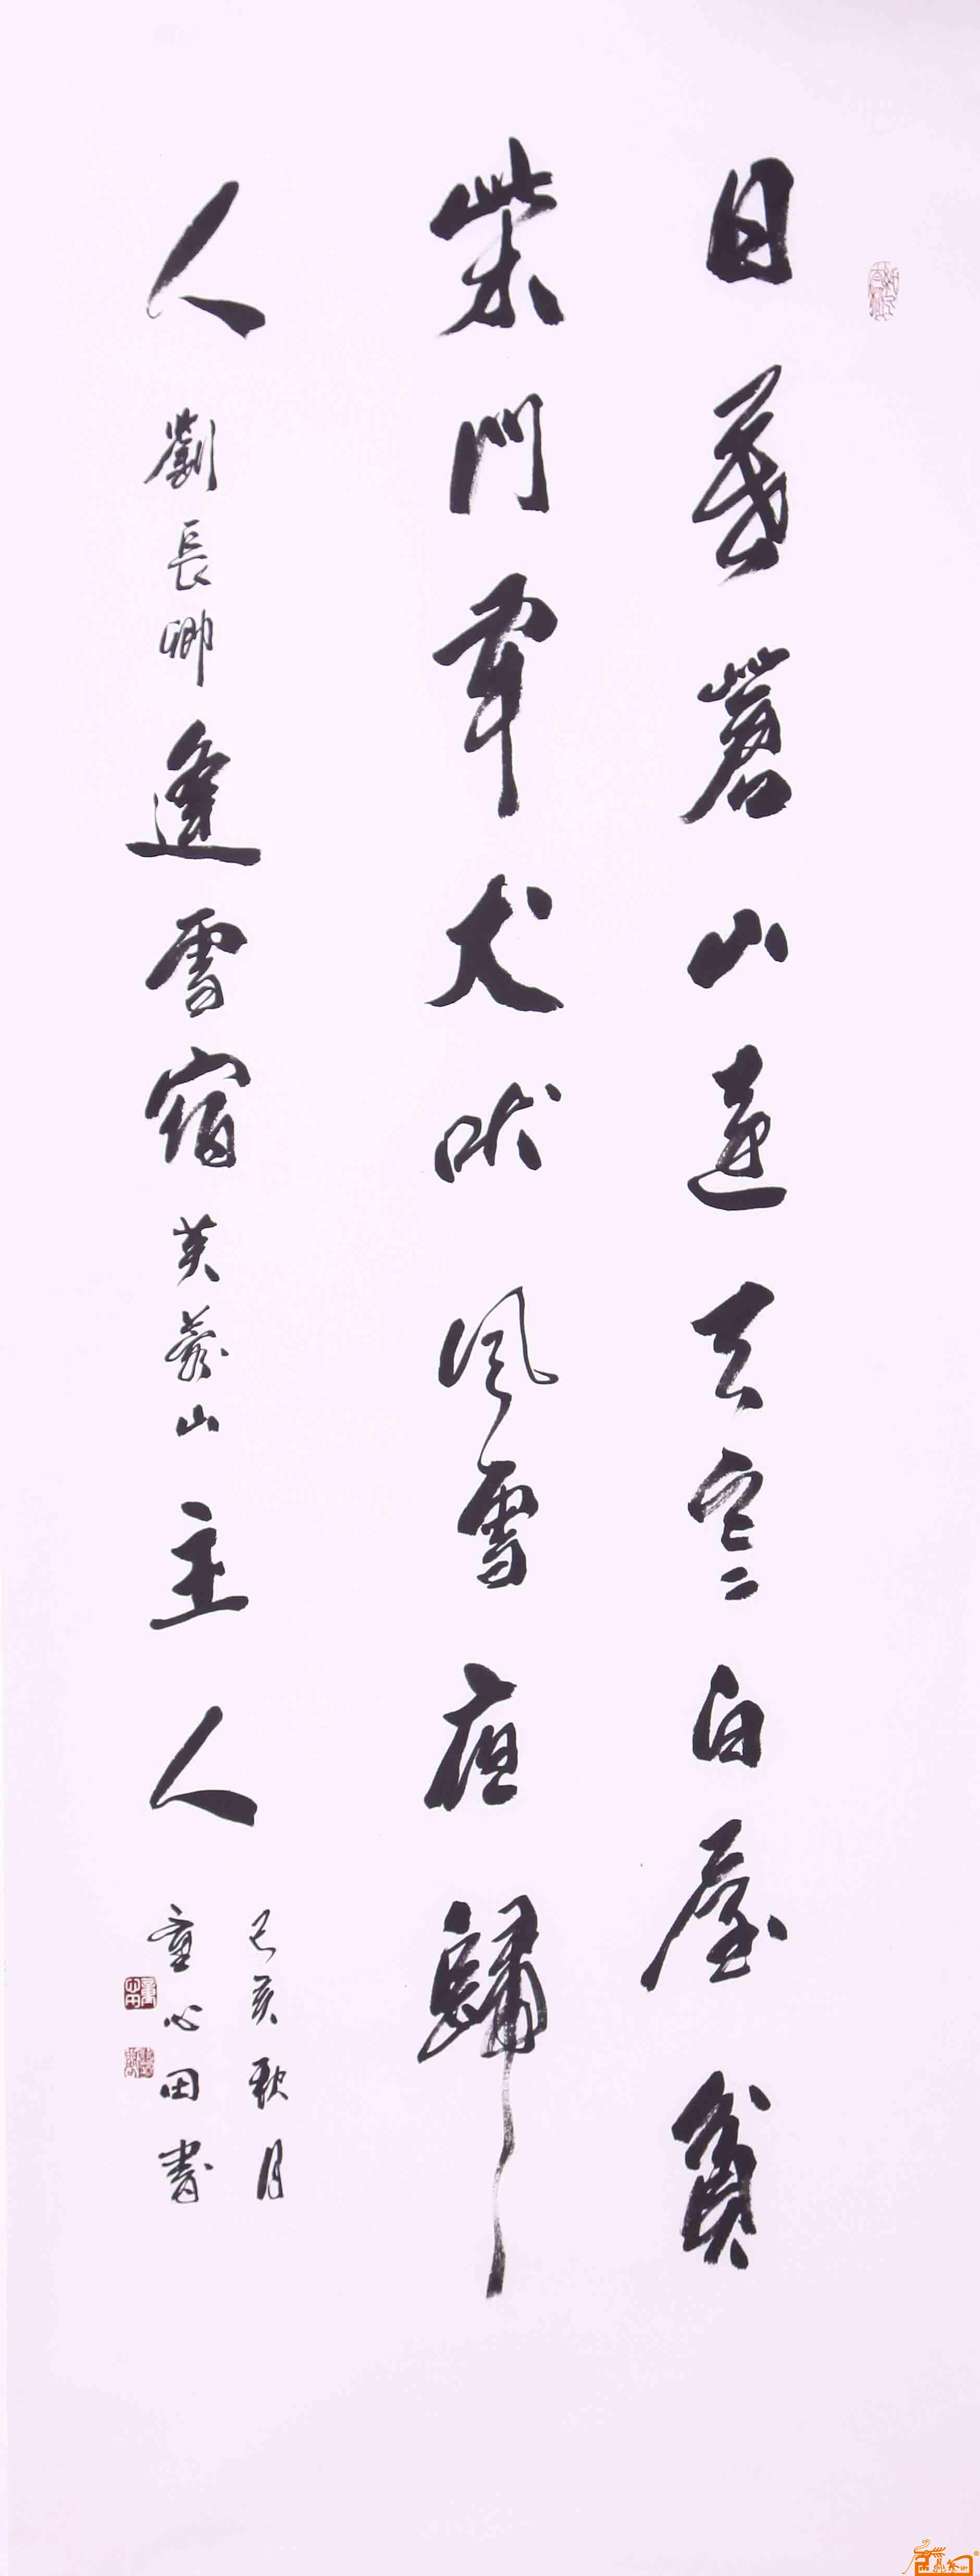 日暮蒼山遠天寒白屋貧
柴門聞犬吠風雪夜歸
人劉長卿逢雪宿芙蓉山主人
己亥秋月
童心田書